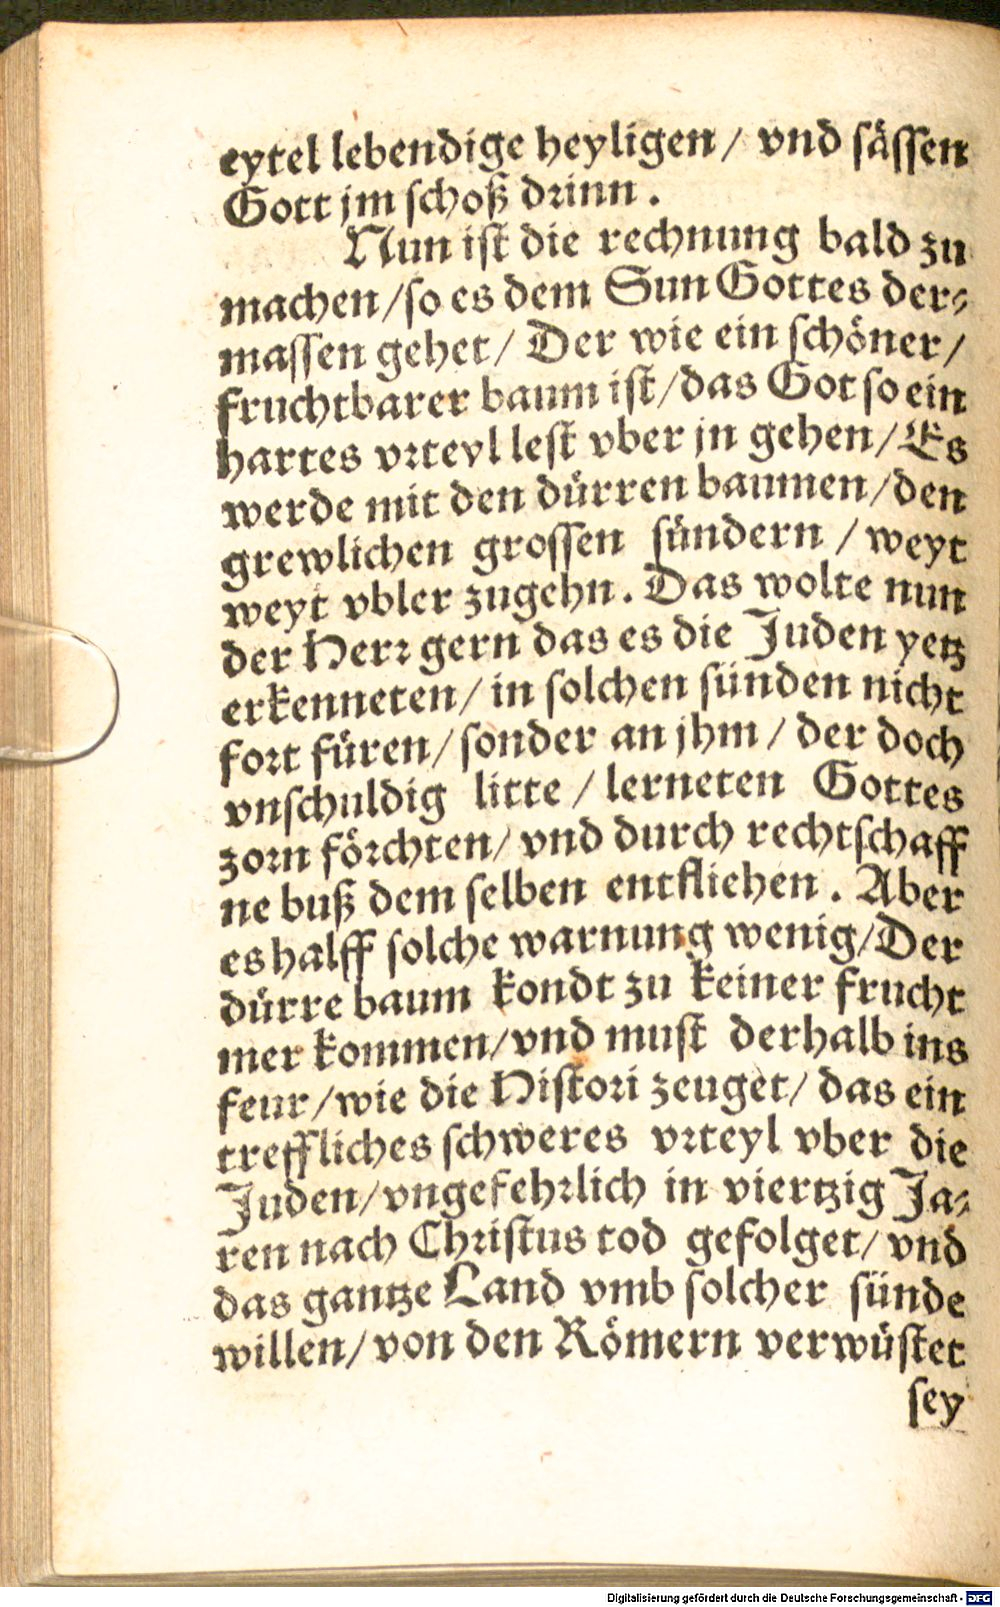 eytel lebendige heyligen / vnd sässen
Gott jm schoß drinn .
Nun ist die rechnung bald zu
machen / so es dem Sun Gottes der⸗
massen gehet / Der wie ein schöner /
fruchtbarer baum ist / das Got so ein
hartes vrteyl lest vber jn gehen / Es
werde mit den dürren baumen / den
grewlichen grossen sündern / weyt
weyt vbler zugehn . Das wolte nun
der Herr gern das es die Juden yetz
erkenneten / in solchen sünden nicht
fort füren / sonder an jhm / der doch
vnschuldig litte / lerneten Gottes
zorn förchten / vnd durch rechtschaff
ne buß dem selben entfliehen . Aber
es halff solche warnung wenig / Der
dürre baum kondt zu keiner frucht
mer kommen / vnd must derhalb ins
feur / wie die Histori zeuget / das ein
treffliches schweres vrteyl vber die
Juden / vngefehrlich in viertzig Ja⸗
ren nach Christus tod gefolget / vnd
das gantze Land vmb solcher sünde
willen / von den Römern verwüstet
sey
Digitalisierung gefördert durch die Deutsche Forschungsgemeinschaft - DFG